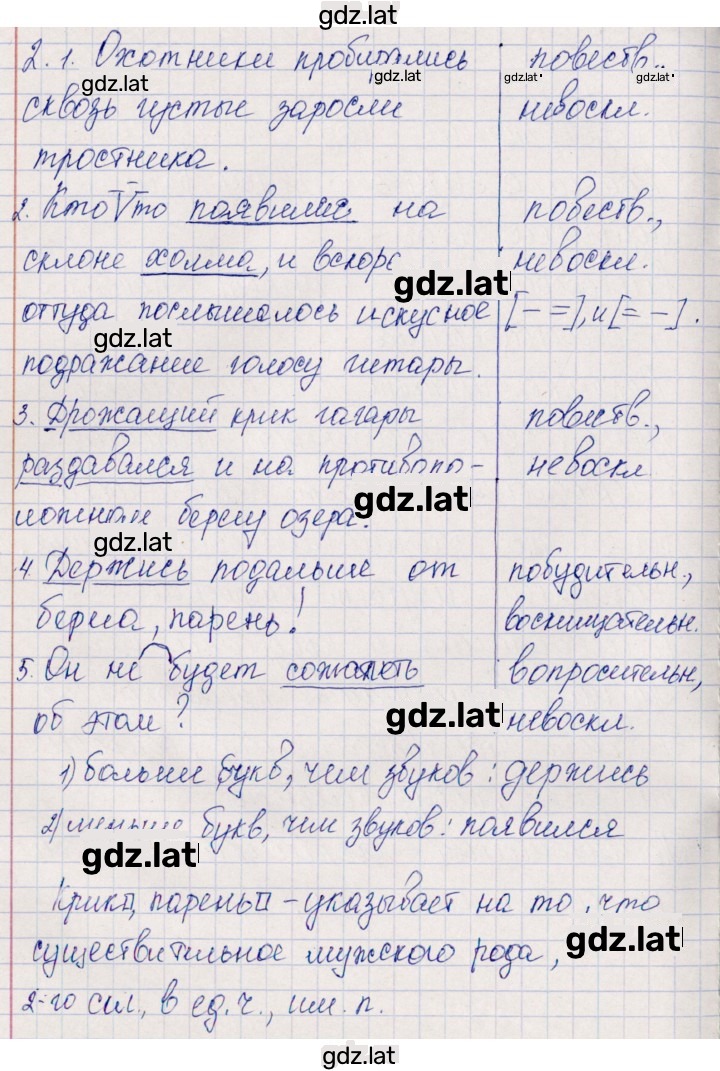 gdz.lat
2.1. Охотники пробились повеств.
gdz.lat gdz.lat gdz.lat gdz.lat
сквозь густые заросли невоскл.
тростника.
2. Кто то появился на повеств.,
склоне холма, и вскоре невоскл.
gdz.lat
оттуда послышалось искусное [– =], и [= –].
gdz.lat
подражание голосу гитары.
3. Дрожащий крик гагары повеств.,
раздавался и на противопо- невоскл
gdz.lat
ложном берегу озера.
gdz.lat
4. Держись подальше от побудительн.,
берега, парень! восклицательн.
5. Он не будет сожалеть вопросительн,
об этом? gdz.lat невоскл.
1) больше букв, чем звуков: держись
2) меньше букв, чем звуков: появился
gdz.lat
Крик, парень – указывает на то, что
существительное мужского рода, gdz.lat
2-го скл., в ед.ч., им. п.
gdz.lat